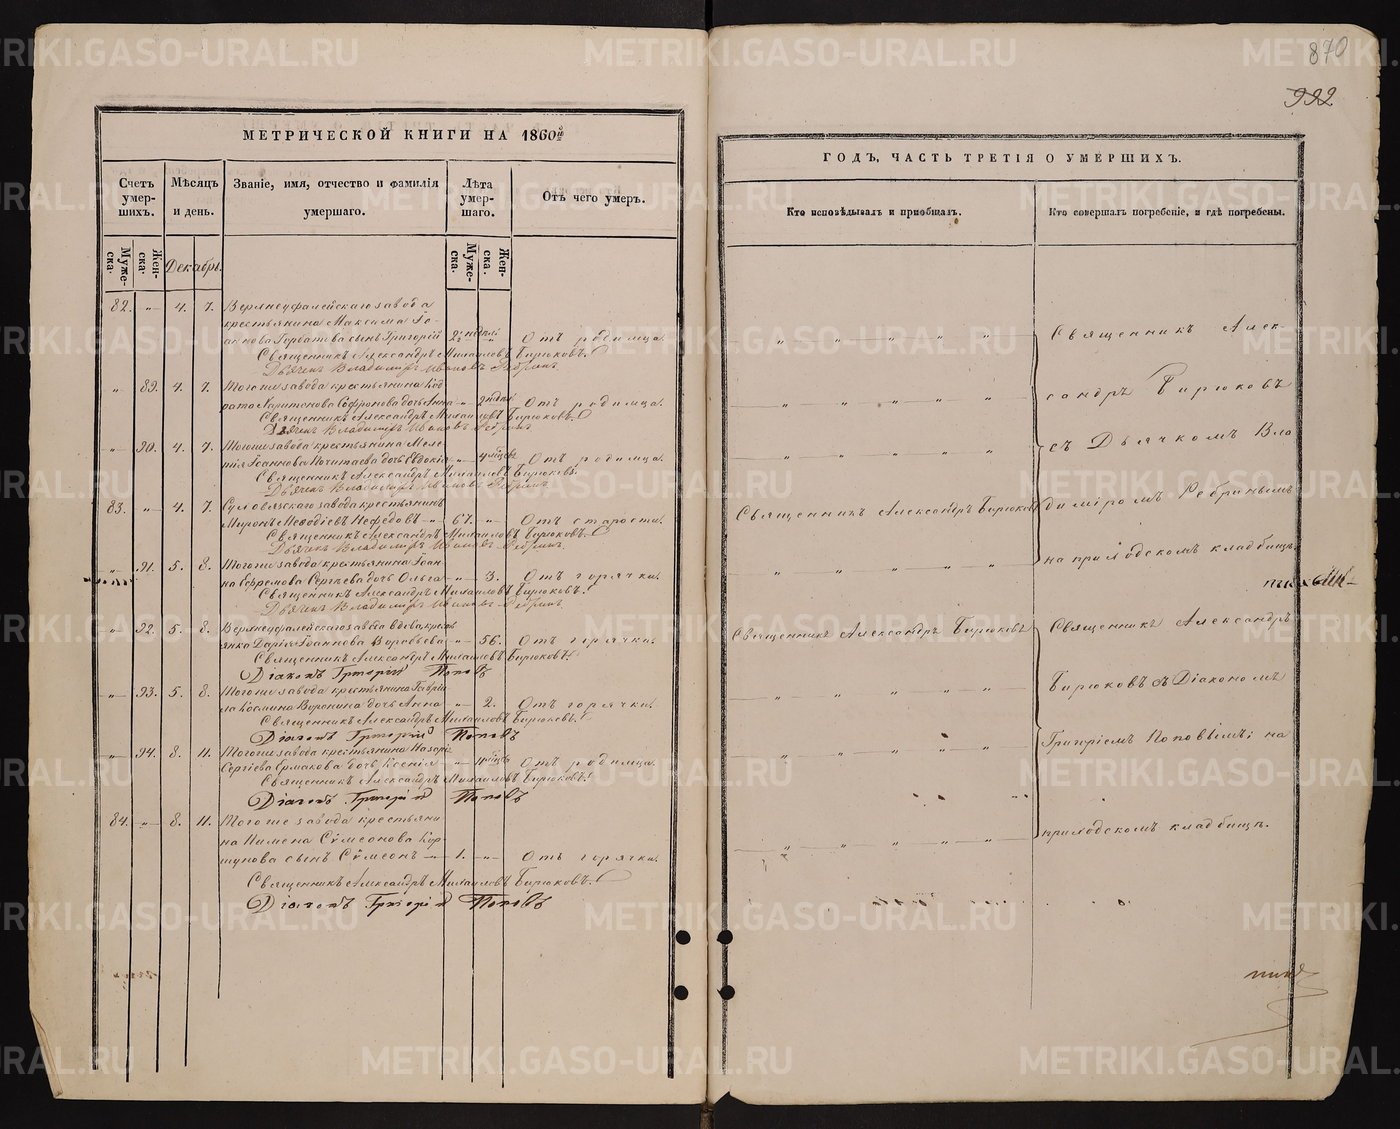 870
992
МЕТРИЧЕСКОЙ КНИГИ НА 1860й
Счетъ умер-шихъ.
Мѣсяцъ и день.
Званіе, имя, отчество и фамилія умершаго.
Лѣта умер-шаго.
Отъ чего умеръ.
Муже-ска.
Жен-ска.
Декабрь.
Муже-ска.
Жен-ска.
82. „ 4. 7. Верхнеуфалейскаго завода
крестьянина Максима Іо-
аннова Горбатова сынъ Григорій 2 недѣли „ Отъ родимца.
Священникъ Александръ Михаиловъ Бирюковъ.
Дьячекъ Владимиръ Ивановъ Ребринъ
„ 89. 4. 7. Тогоже завода крестьянина Код-
рата Харитонова Софронова дочь Анна „ 2 недѣли Отъ родимца.
Священникъ Александръ Михаиловъ Бирюковъ.
Дьячекъ Владимиръ Ивановъ Ребринъ
„ 90. 4. 7. Тогоже завода крестьянина Меле-
тія Іоаннова Почитаева дочь Евдокія „ 4 мѣсяца Отъ родимца.
Священникъ Александръ Михаиловъ Бирюковъ.
Дьячекъ Владимиръ Ивановъ Ребринъ
83. „ 4. 7. Суховязскаго завода крестьянинъ
Миронъ Неводіевъ Нефедовъ 67. „ Отъ старости.
Священникъ Александръ Михаиловъ Бирюковъ.
Дьячекъ Владимиръ Ивановъ Ребринъ
„ 91. 5. 8. Тогоже завода крестьянина Іоан-
на Ефремова Сергѣева дочь Ольга „ 3. Отъ горячки.
Священникъ Александръ Михаиловъ Бирюковъ.
Дьячекъ Владимиръ Ивановъ Ребринъ
„ 92. 5. 8. Верхнеуфалейскаго завода вдова кресть-
янка Дарія Іоаннова Воробьева „ 56. Отъ горячки.
Священникъ Александръ Михаиловъ Бирюковъ.
Діаконъ Григорій Поповъ
„ 93. 5. 8. Тогоже завода крестьянина Гавріи-
ла Космина Воронина дочь Анна „ 2. Отъ горячки.
Священникъ Александръ Михаиловъ Бирюковъ.
Діаконъ Григорій Поповъ
„ 94. 8. 11. Тогоже завода крестьянина Назарія
Сергіева Ермакова дочь Ксенія „ мѣсяцъ Отъ родимца.
Священникъ Александръ Михаиловъ Бирюковъ.
Діаконъ Григорій Поповъ
84. „ 8. 11. Тогоже завода крестьяни-
на Пимена Сѵмеонова Кор-
шунова сынъ Сѵмеонъ 1. „ Отъ горячки.
Священникъ Александръ Михаиловъ Бирюковъ.
Діаконъ Григорій Поповъ
ГОДЪ, ЧАСТЬ ТРЕТІЯ О УМЕРШИХЪ.
Кто исповѣдывалъ и пріобщалъ.
Кто совершалъ погребеніе, и гдѣ погребены.
Священникъ Алек-
сандръ Бирюковъ
съ Дьячкомъ Вла-
Священникъ Александръ Бирюковъ
димiромъ Ребринымъ
на приходскомъ кладбищѣ.
Священникъ Александръ Бирюковъ
Священникъ Александръ
Бирюковъ съ Діакономъ
Григоріемъ Поповымъ; на
приходскомъ кладбищѣ.
METRIKI.GASO-URAL.RU